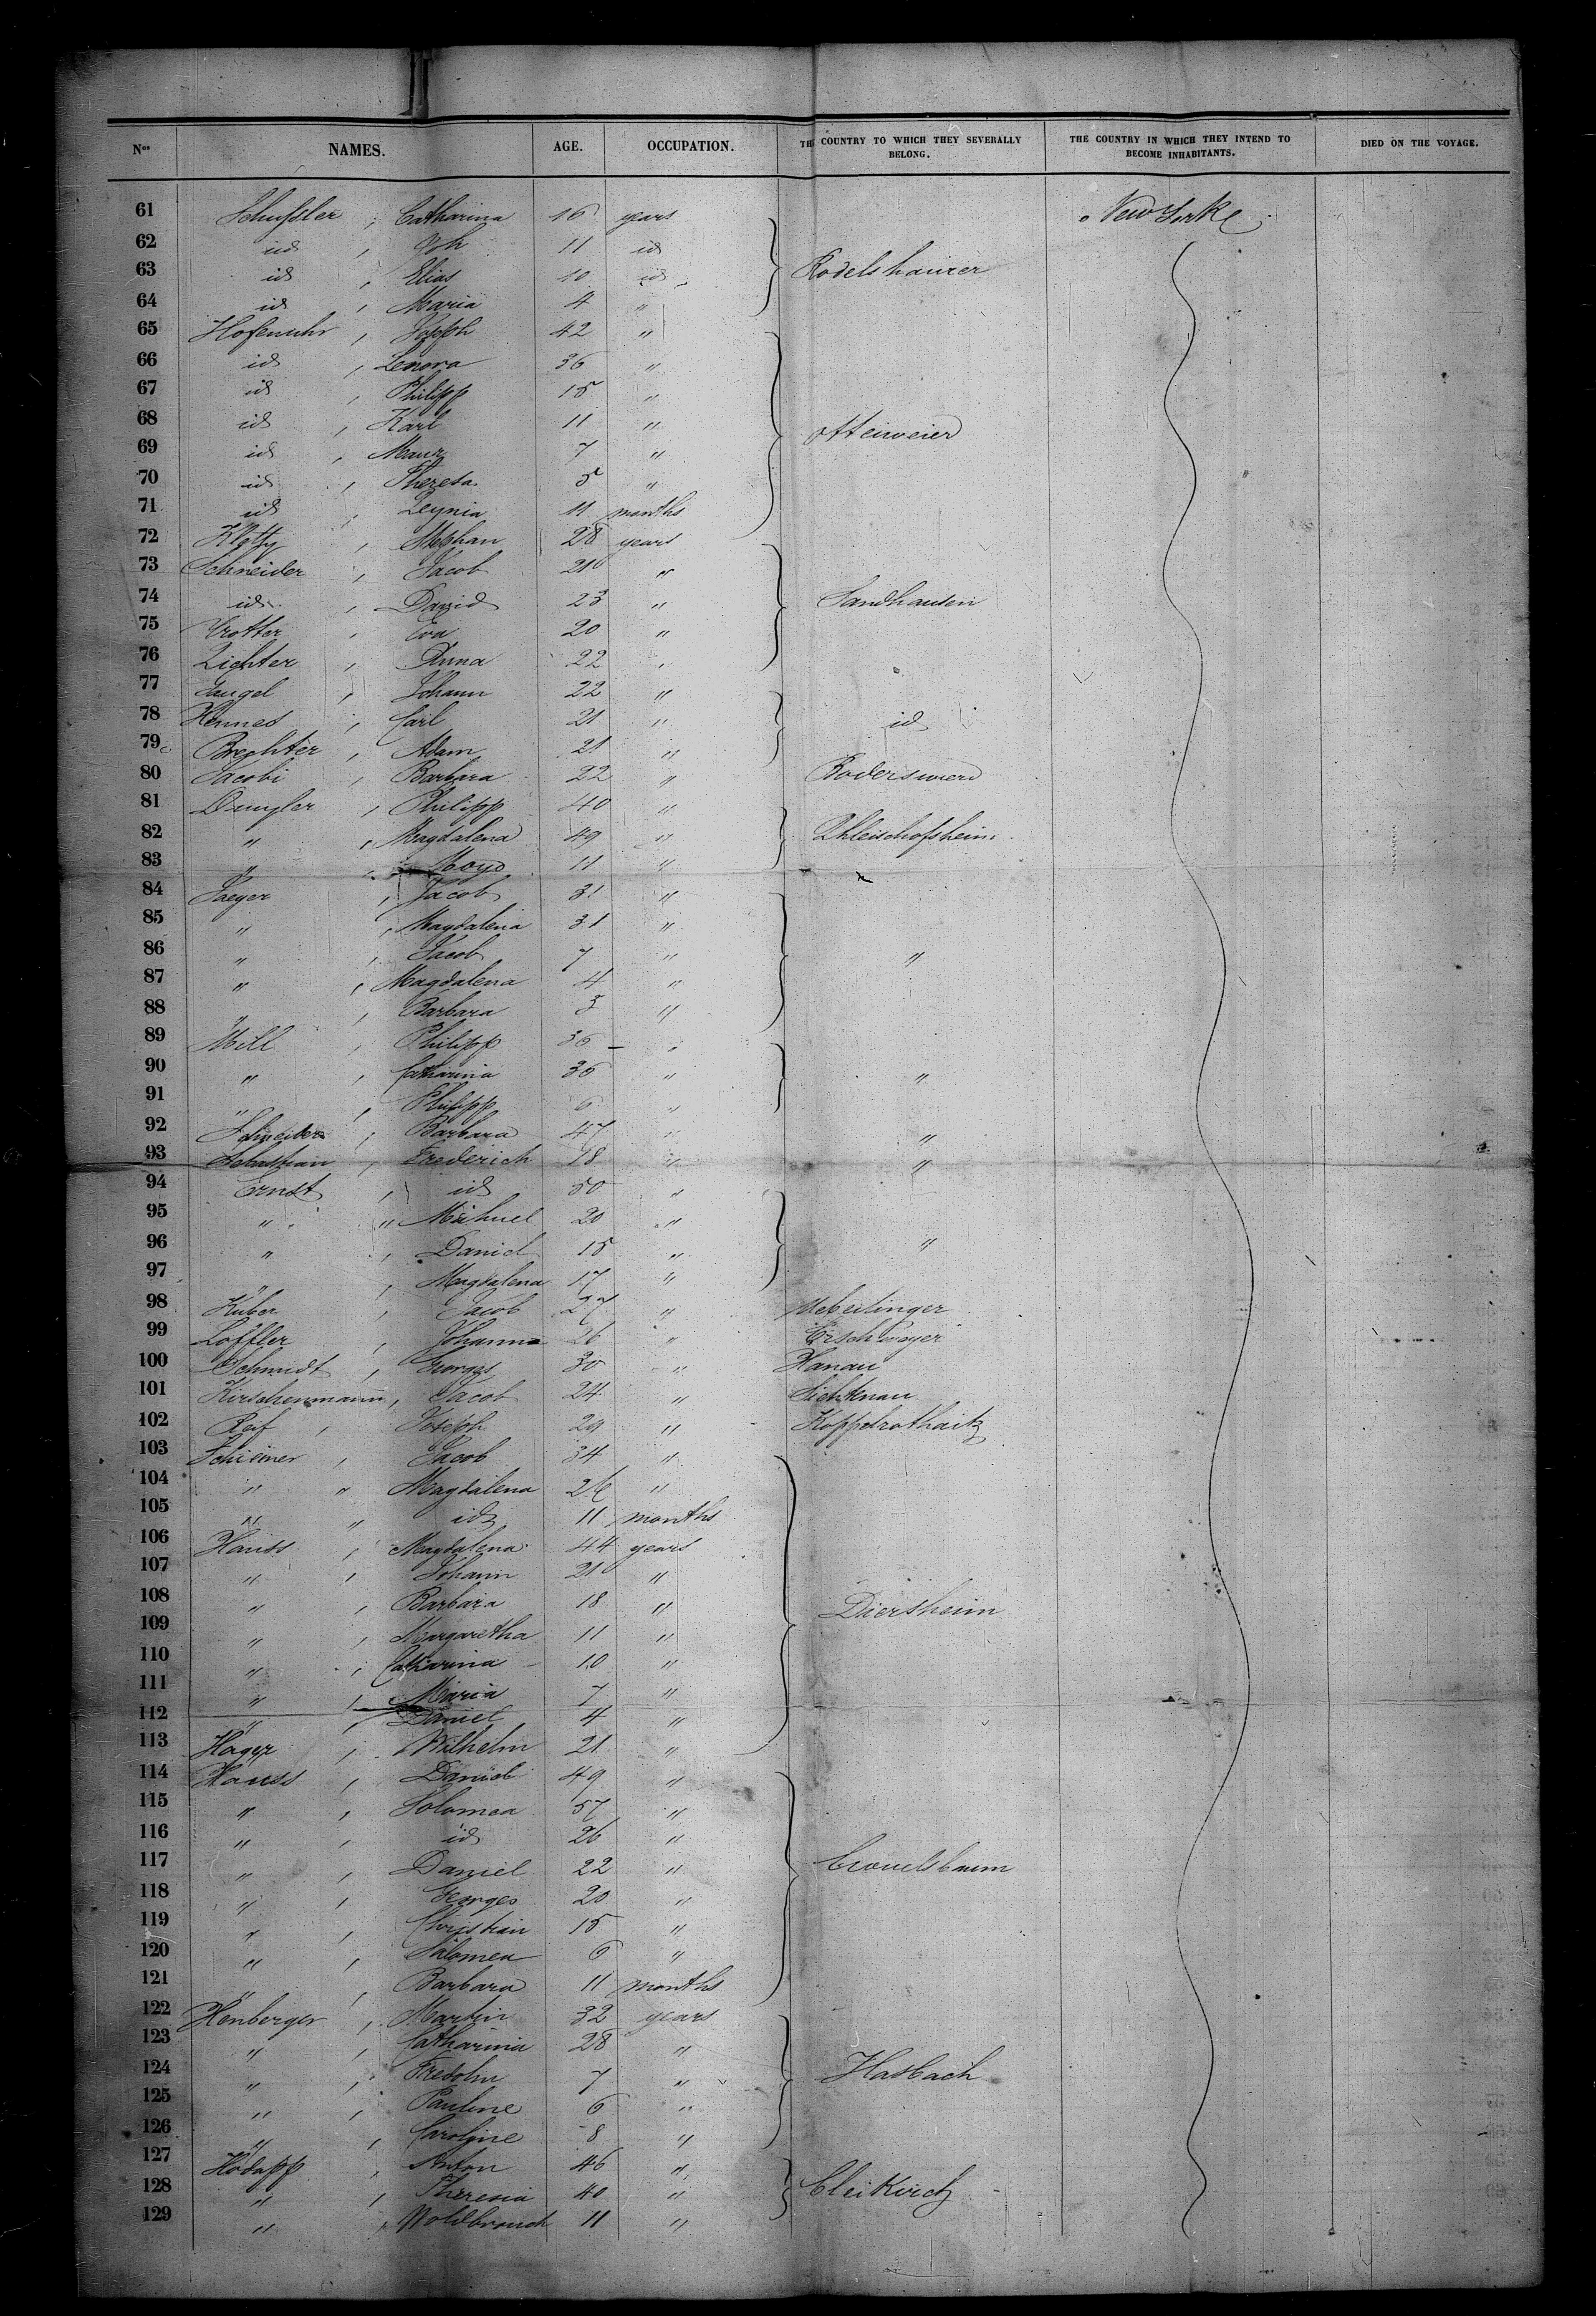 Nos NAMES. AGE. OCCUPATION. THE COUNTRY TO WHICH THEY SEVERALLY BELONG. THE COUNTRY IN WHICH THEY INTEND TO BECOME INHABITANTS. DIED ON THE VOYAGE.
61 Schussler , Catharina 16 years New Yorke
62 id , Joh 11 id
63 id , Elias 10 id Rodelshaurer
64 id , Maria 4 "
65 Hofenuhr , Joseph 42 "
66 id , Lenora 36 "
67 id , Philipp 15 "
68 id , Karl 11 " Atteiweier
69 id , 7 "
70 id , Theresa 5 "
71 id , 11 months
72 Klotty , Stephan 28 years
73 Schneider , Jacob 21 "
74 id , David 23 " Sandhausen
75 Trotter , Eva 20 "
76 Lichter , Anna 22 "
77 , Johann 22 "
78 Hennes , Carl 21 " id
79 Brechter , Adam 21 "
80 Jacobi , Barbara 22 "
81 , Philipp 40 "
82 " , Magdalena 49 " Rhleischofsheim
83 " , 11 "
84 Jaeger , Jacob 31 "
85 " , Magdalena 31 "
86 " , Jacob 7 " "
87 " , Magdalena 4 "
88 " , Barbara 3 "
89 Mill , Philipp 36 "
90 " , Catharina 36 " "
91 " , Philipp 6 "
92 Schneider , Barbara 47 " "
93 Sebastian , Frederich 18 " "
94 Ernst , id 50 "
95 " " Michael 20 "
96 " , Daniel 15 " "
97 " , Magdalena 17 "
98 Huber , Jacob 27 "
99 Löffler , Johanna 26 "
100 Schmidt , Georges 30 " Hanau
101 Kirschenmann , Jacob 24 "
102 Reif , Joseph 29 "
103 Schreiner , Jacob 34 "
104 " " Magdalena 26 "
105 " " id 11 months
106 Hauss , Magdalena 44 years
107 " , Johann 21 "
108 " , Barbara 18 " Diersheim
109 " , Margaretha 11 "
110 " , Catharina 10 "
111 " , Maria 7 "
112 " , Daniel 4 "
113 Hager , Wilhelm 21 "
114 Hauss , Daniel 49 "
115 " , Solomea 57 "
116 " , id 26 "
117 " , Daniel 22 "
118 " , Georges 20 "
119 " , Christian 15 "
120 " , Salomea 6 "
121 " , Barbara 11 months
122 Henberger , Martin 32 years
123 " , Catharina 28 "
124 " , Fredolin 7 " Hasbach
125 " , Pauline 6 "
126 " , Caroline 8 "
127 Hodapp , Anton 46 "
128 " , Theresia 40 "
129 " , 11 "